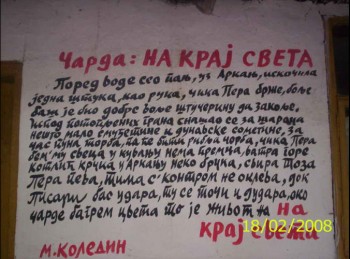 Чарда: НА КРАЈ СВЕТА
Поред воде сео паљ, уз Аркањ, искочила
једна штука, мао рука, чика Пера брже, боље
баш је био добре воље штучерину да закоље,
испод потопљених грана снашао се за шарана
нешто мало смуђетине и дунавске сометине, за
час пуна торба, па ће бити рибља чорба, чика Пера
беж'му свеца у кувању нема премца, ватра горе
котлић крчка у Аркању неко брчка, свира Тоза
Пера пева, тима с' контром не оклева, док
Писарић бас удара, ту се точи и дудара, око
чарде багрем цвета то је живот на НА
КРАЈ СВЕТА
М. Коледин
18/02/2008